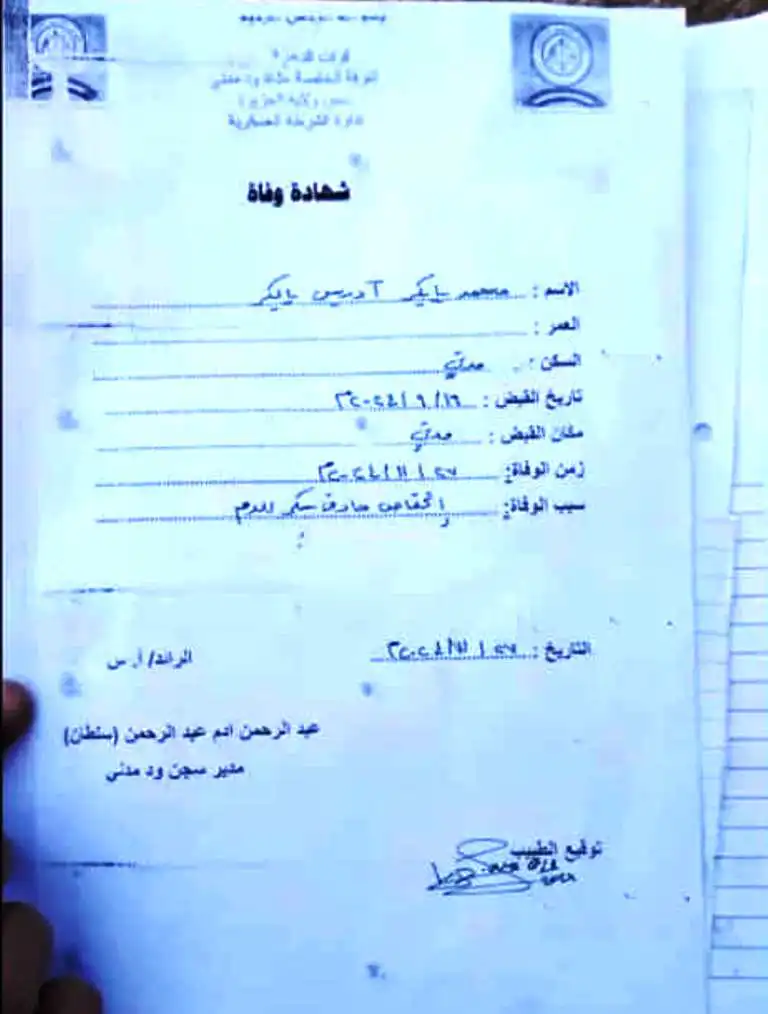 قوات الدعم
الفرقة الخامسة مشاة ود مدني
سجن ولاية الجزيرة
إدارة الشرطة العسكرية
شهادة وفاة
الاسم : محمد بابكر آدريس بابكر
العمر :
السكن : مدني
تاريخ القبض : ١٦/٩/٢٠٢٤م
مكان القبض : مدني
زمن الوفاة: ٢٧/١١/٢٠٢٤م
سبب الوفاة: إنخفاض حاد في سكر الدم
التاريخ : ٢٧/١١/٢٠٢٤م
الرائد/ أ. س
عبد الرحمن ادم عبد الرحمن (سلطان)
مدير سجن ود مدني
توقيع الطبيب